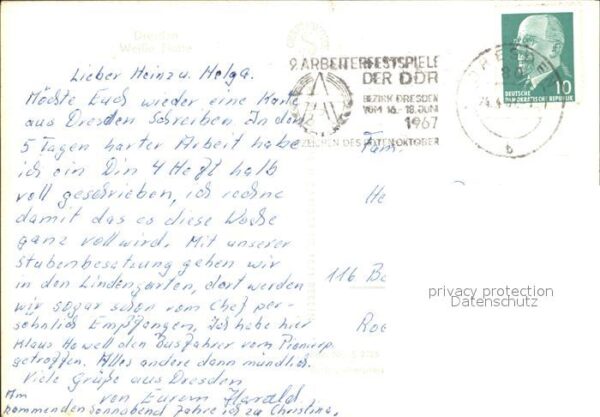 Dresden
Weiße Flotte
9. ARBEITERFESTSPIELE
DER DDR
BEZIRK DRESDEN
VOM 16.-18. JUNI
1967
ZEICHEN DES ROTEN OKTOBER
DRESDEN
80
b
10
DEUTSCHE
DEMOKRATISCHE REPUBLIK
Lieber Heinz u. Helga.
Möchte Euch wieder eine Karte
aus Dresden schreiben. In den
5 Tagen harter Arbeit habe
ich ein Din 4 Heft halb
voll geschrieben, ich rechne
damit das es diese Woche
ganz voll wird. Mit unserer
Stubenbesatzung gehen wir
in den Lindengarten, dort werden
wir sogar schon vom Chef per-
söhnlich Empfangen. Ich habe hier
Klaus Howell den Busfahrer vom Pionierp.
getroffen. Alles andere dann mündlich.
Viele Grüße aus Dresden
von Eurem Harald.
Am
kommenden Sonnabend fahre ich zu Christine,
Fam
He
116. Be
Roe
privacy protection
Datenschutz